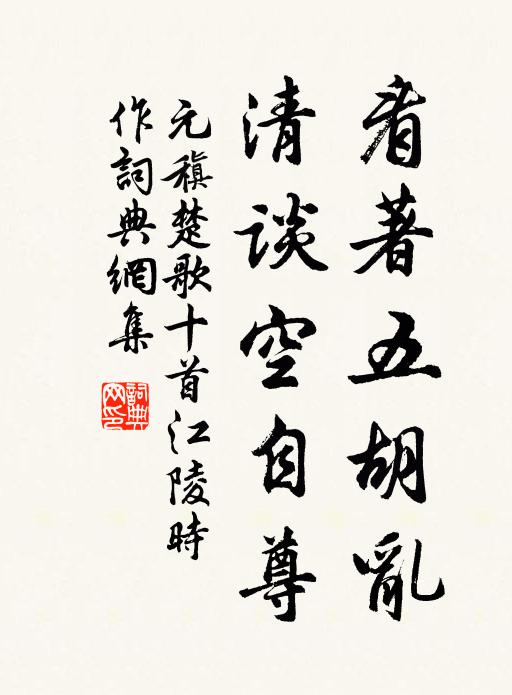 看著五胡亂
清談空自尊
元稹楚歌十首江陵時
作詞典網集
詞典
网印